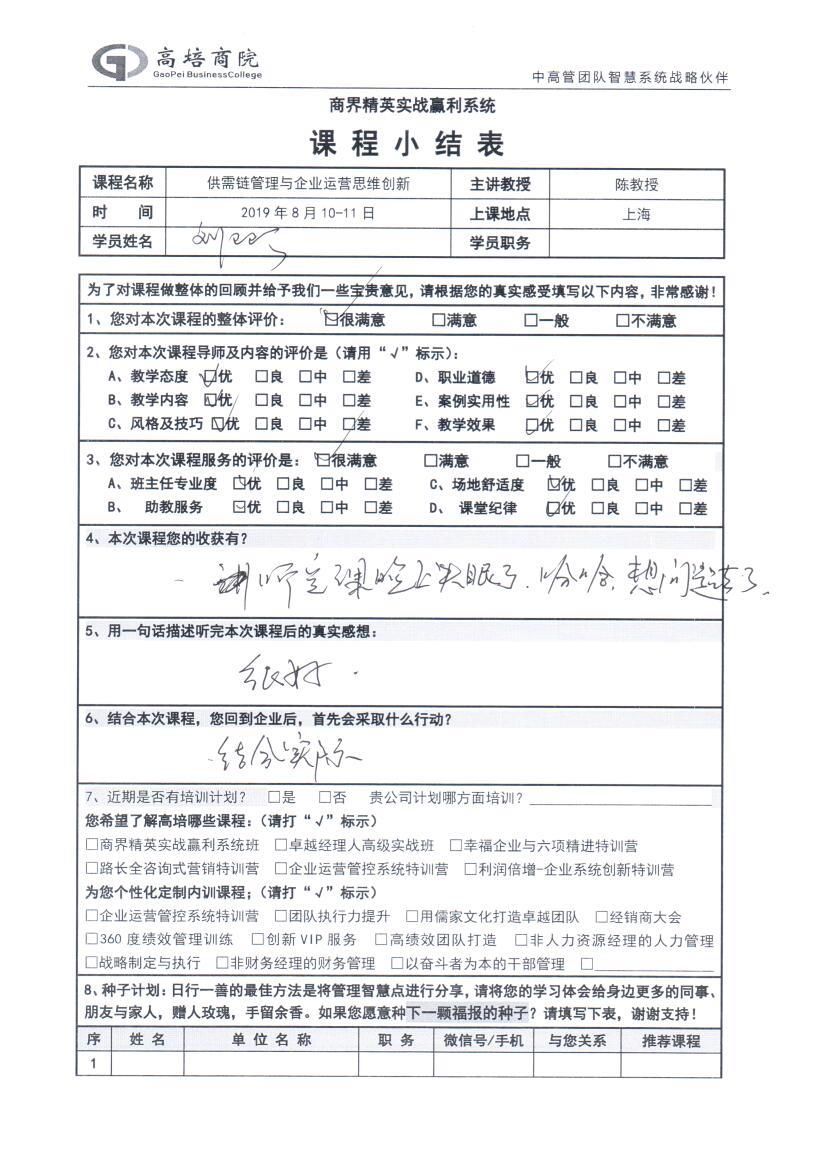 高培商院
GaoPei BusinessCollege
中高管团队智慧系统战略伙伴
商界精英实战赢利系统
课程小结表
课程名称 供需链管理与企业运营思维创新 主讲教授 陈教授
时 间 2019年8月10-11日 上课地点 上海
学员姓名 刘 学员职务
为了对课程做整体的回顾并给予我们一些宝贵意见，请根据您的真实感受填写以下内容，非常感谢！
1、您对本次课程的整体评价： ☑很满意 □满意 □一般 □不满意
2、您对本次课程导师及内容的评价是（请用“√”标示）：
A、教学态度 ☑优 □良 □中 □差 D、职业道德 ☑优 □良 □中 □差
B、教学内容 ☑优 □良 □中 □差 E、案例实用性 ☑优 □良 □中 □差
C、风格及技巧 ☑优 □良 □中 □差 F、教学效果 ☑优 □良 □中 □差
3、您对本次课程服务的评价是： ☑很满意 □满意 □一般 □不满意
A、班主任专业度 ☑优 □良 □中 □差 C、场地舒适度 ☑优 □良 □中 □差
B、 助教服务 ☑优 □良 □中 □差 D、 课堂纪律 ☑优 □良 □中 □差
4、本次课程您的收获有？
课晚上失眠了．哈哈．想问题去了．
5、用一句话描述听完本次课程后的真实感想：
很好．
6、结合本次课程，您回到企业后，首先会采取什么行动？
结合实际
7、近期是否有培训计划？ □是 □否 贵公司计划哪方面培训？
您希望了解高培哪些课程：（请打“√”标示）
□商界精英实战赢利系统班 □卓越经理人高级实战班 □幸福企业与六项精进特训营
□路长全咨询式营销特训营 □企业运营管控系统特训营 □利润倍增-企业系统创新特训营
为您个性化定制内训课程；（请打“√”标示）
□企业运营管控系统特训营 □团队执行力提升 □用儒家文化打造卓越团队 □经销商大会
□360度绩效管理训练 □创新VIP服务 □高绩效团队打造 □非人力资源经理的人力管理
□战略制定与执行 □非财务经理的财务管理 □以奋斗者为本的干部管理 □
8、种子计划：日行一善的最佳方法是将管理智慧点进行分享，请将您的学习体会给身边更多的同事、
朋友与家人，赠人玫瑰，手留余香。如果您愿意种下一颗福报的种子？请填写下表，谢谢支持！
序 姓名 单位名称 职务 微信号/手机 与您关系 推荐课程
1